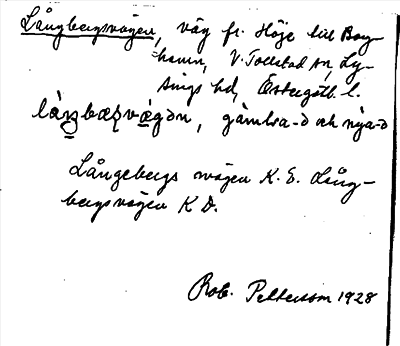 Långbergsvägen, väg fr. Höje till Borg-
hamn, V. Tollstad sn, Ly-
sings hd, Östergötl. l.
låŋbærvägən, gàmbra-ə och nỳa-ə
Långebergs vägen K. E. Lång-
bergsvägen K D.
Rob. Pettersson 1928